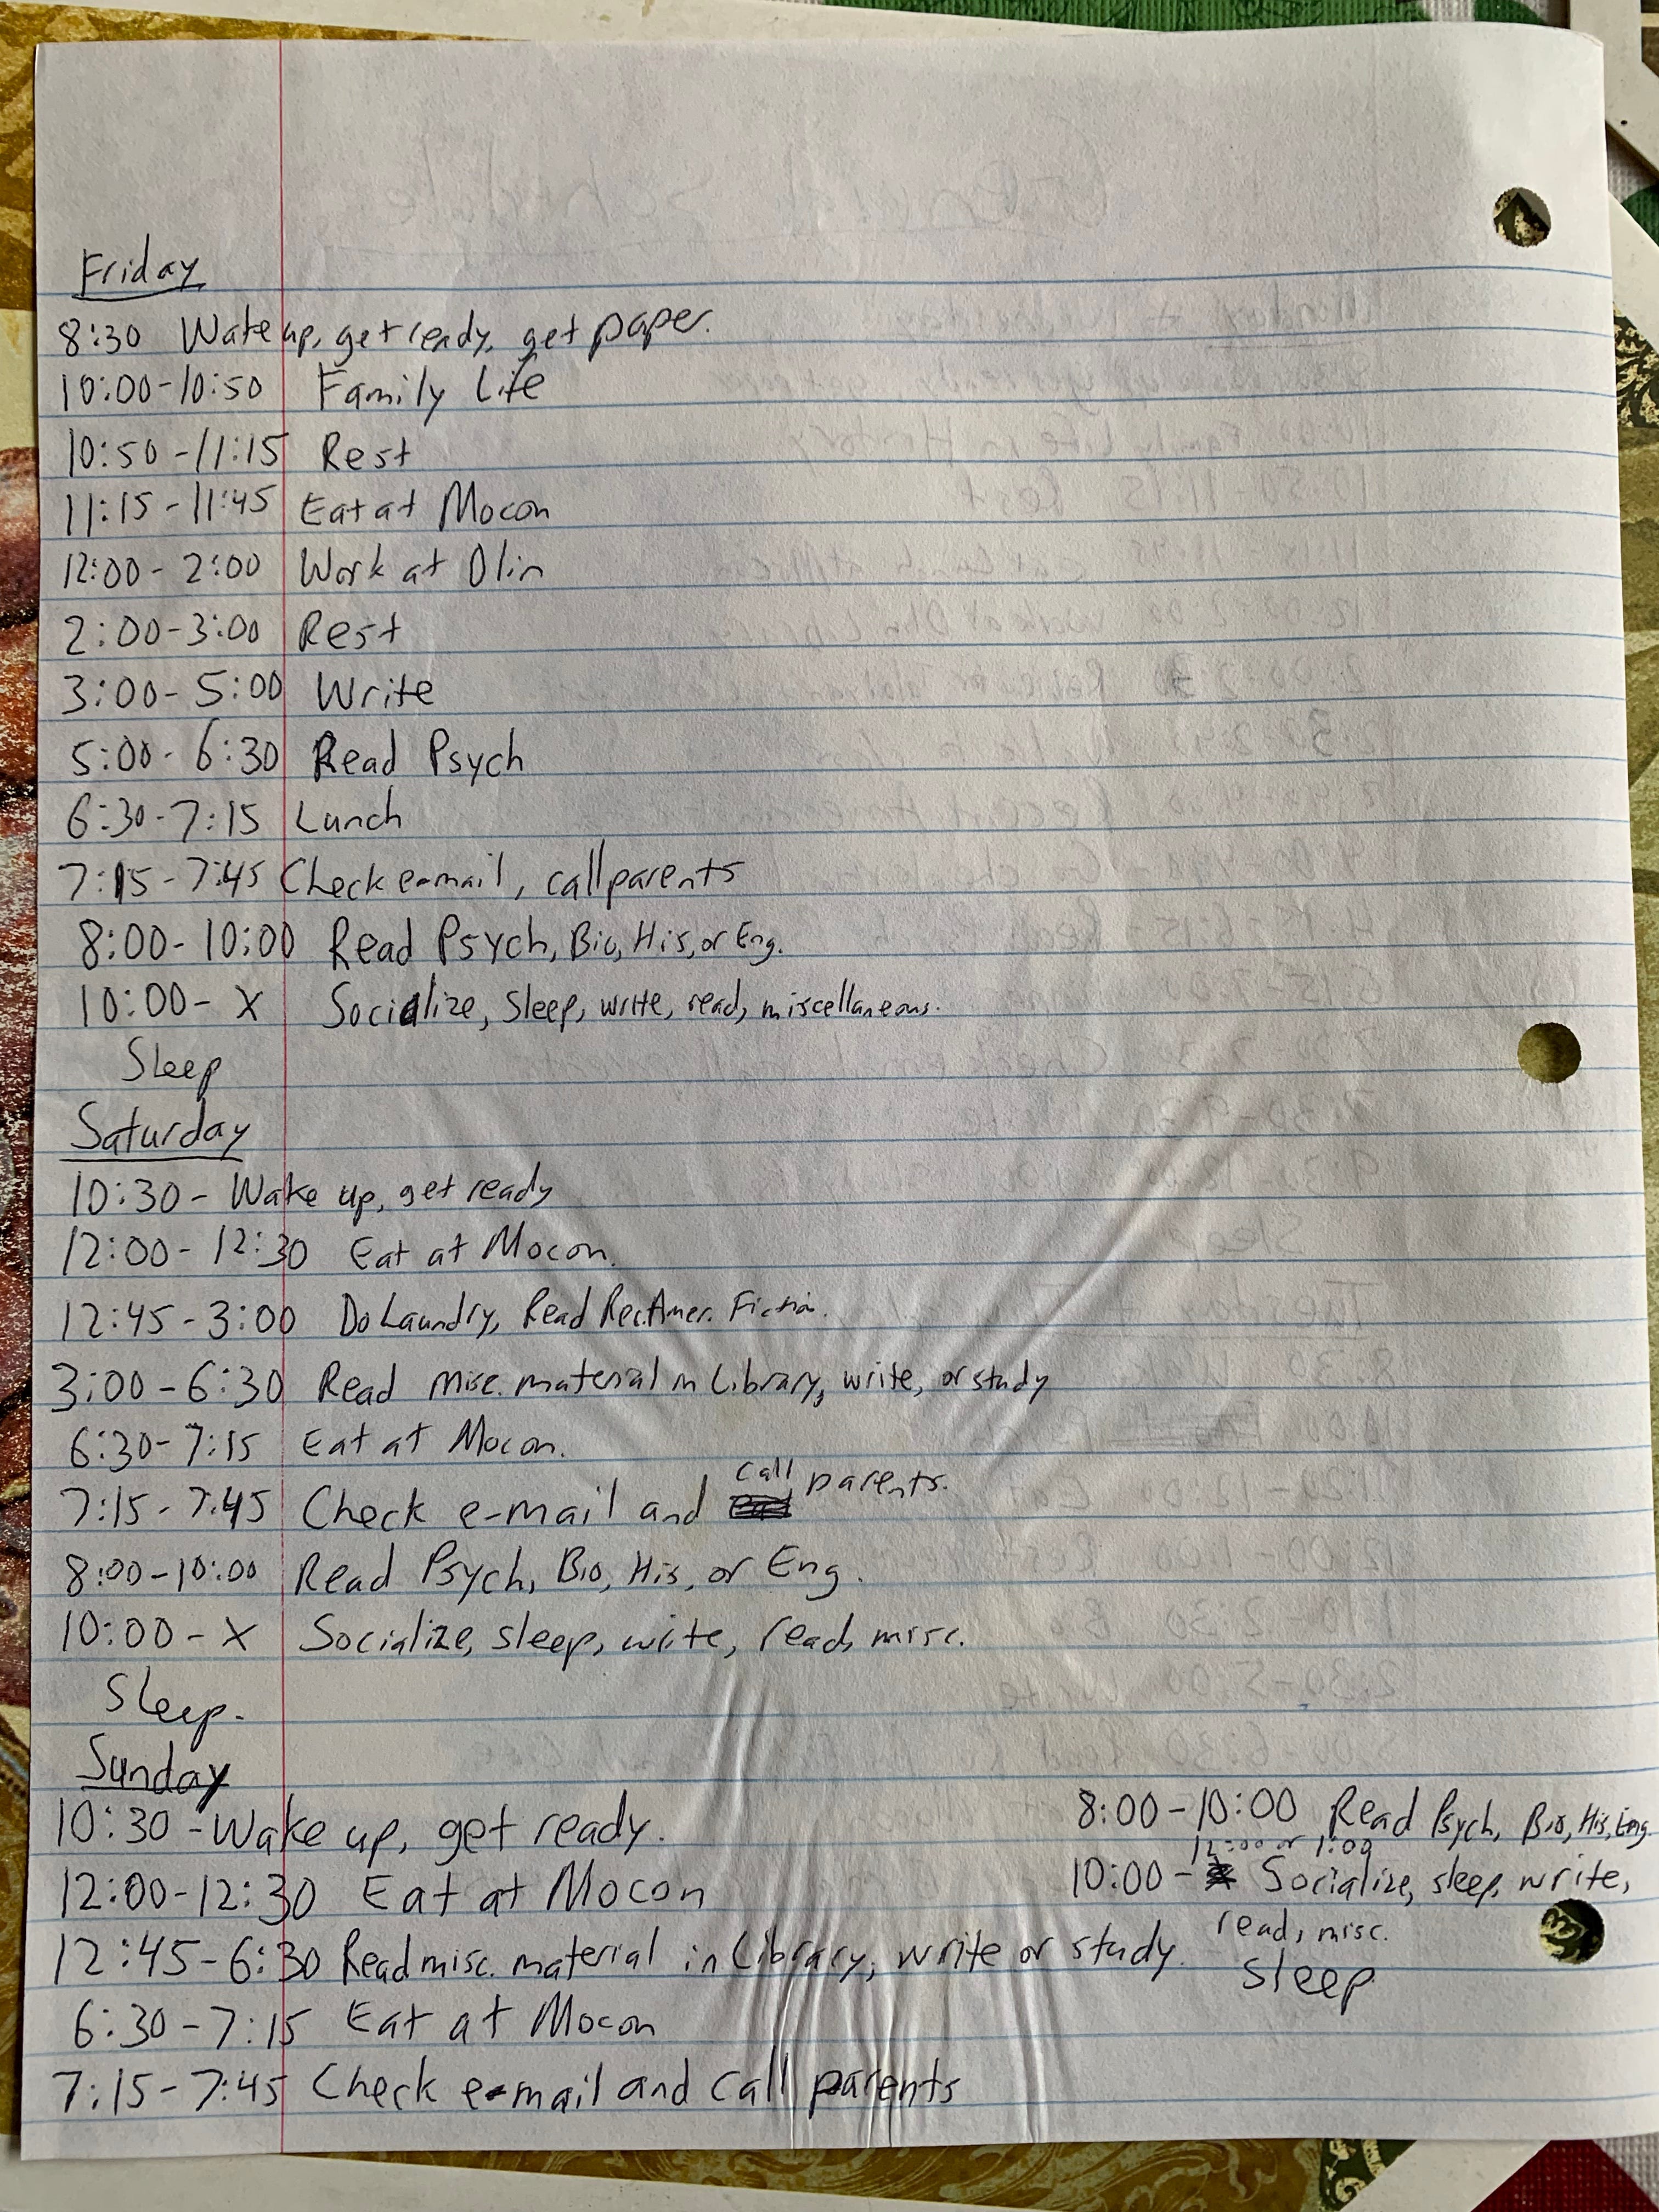 Friday
8:30 Wake up, get ready, get paper.
10:00-10:50 Family Life
10:50-11:15 Rest
11:15-11:45 Eat at Mocon
12:00-2:00 Work at Olin
2:00-3:00 Rest
3:00-5:00 Write
5:00-6:30 Read Psych
6:30-7:15 Lunch
7:15-7:45 Check e-mail, call parents
8:00-10:00 Read Psych, Bio, His, or Eng.
10:00-X Socialize, Sleep, write, read, miscellaneous.
Sleep
Saturday
10:30- Wake up, get ready
12:00-12:30 Eat at Mocon.
12:45-3:00 Do Laundry, Read Rec. Amer. Fiction.
3:00-6:30 Read misc. material in Library, write, or study
6:30-7:15 Eat at Mocon.
7:15-7:45 Check e-mail and call parents.
8:00-10:00 Read Psych, Bio, His, or Eng.
10:00-X Socialize, sleep, write, read, misc.
Sleep.
Sunday
10:30-Wake up, get ready.
12:00-12:30 Eat at Mocon
12:45-6:30 Read misc. material in Library, write or study.
6:30-7:15 Eat at Mocon
7:15-7:45 Check e-mail and call parents
8:00-10:00 Read Psych, Bio, His, Eng.
12:00 or 1:00
10:00- Socialize, sleep, write,
read, misc.
Sleep